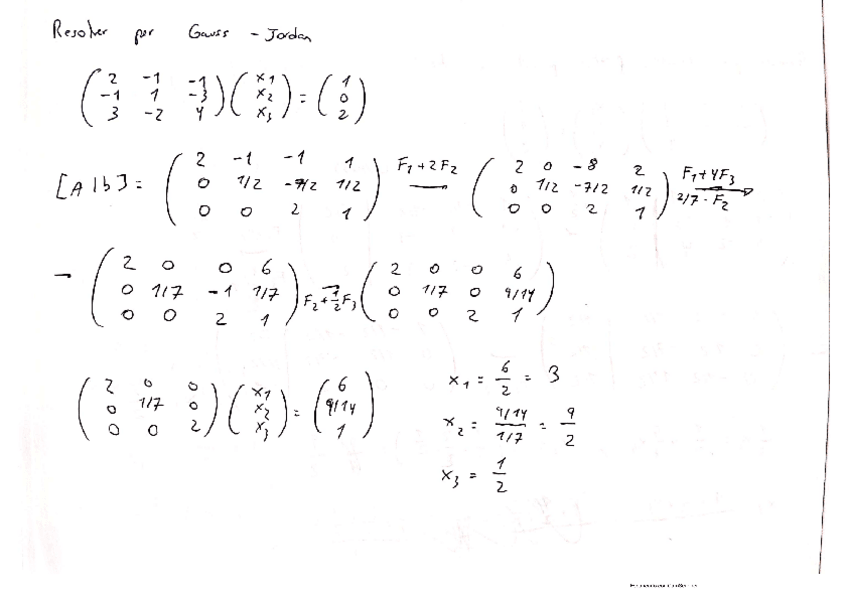 Resolver por Gauss - Jordan
( 2 -1 -1 ; -1 1 -3 ; 3 -2 4 ) ( x1 ; x2 ; x3 ) = ( 1 ; 0 ; 2 )
[A|b] = ( 2 -1 -1 1 ; 0 1/2 -7/2 1/2 ; 0 0 2 1 ) F1+2F2 ( 2 0 -8 2 ; 0 1/2 -7/2 1/2 ; 0 0 2 1 ) F1+4F3 2/7·F2
- ( 2 0 0 6 ; 0 1/7 -1 1/7 ; 0 0 2 1 ) F2+1/2F3 ( 2 0 0 6 ; 0 1/7 0 9/14 ; 0 0 2 1 )
( 2 0 0 ; 0 1/7 0 ; 0 0 2 ) ( x1 ; x2 ; x3 ) = ( 6 ; 9/14 ; 1 )
x1 = 6/2 = 3
x2 = (9/14)/(1/7) = 9/2
x3 = 1/2